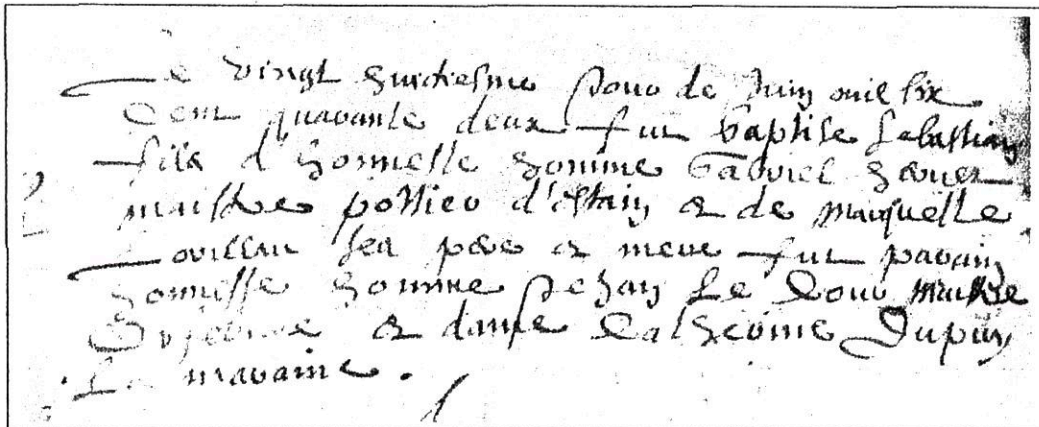 Le vingt huictiesme Jour de Juin mile six
Cent quarante deux fut baptise Sebastian
fils d honneste homme Gabriel
maistre pottier d'estain & de
ses pere & mere fut parain
honneste homme Jehan Le Dour maistre
Orfebvre & dame Catherine Dupuy
La maraine .